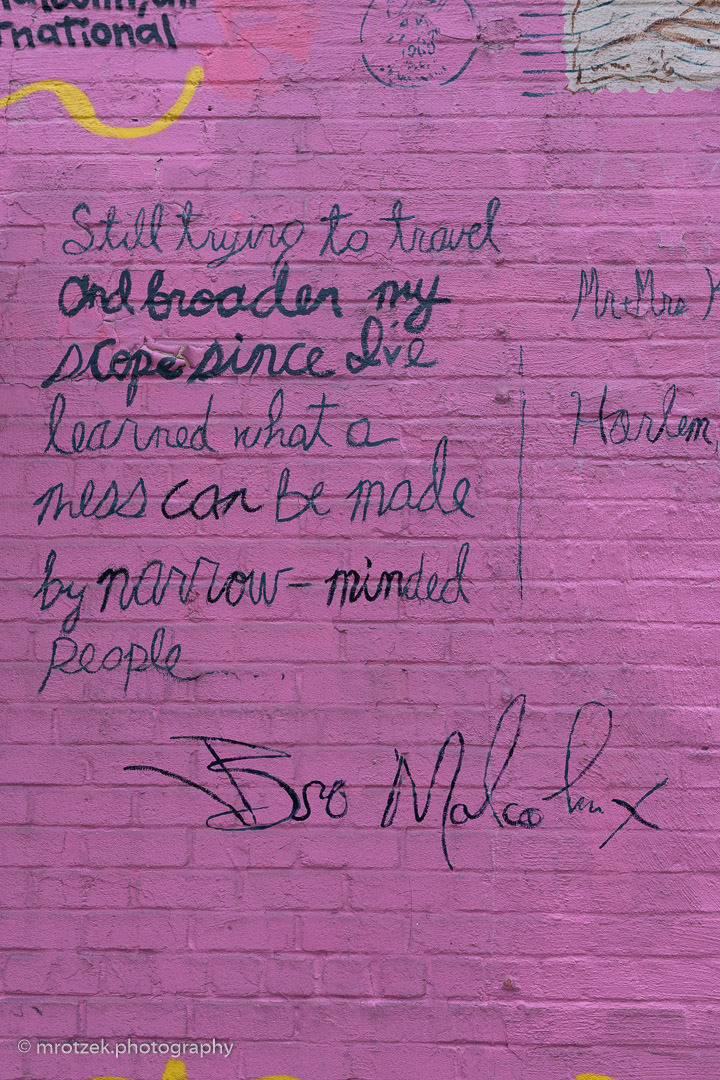 rnational
1969
Still trying to travel
and broaden my
scope since I've
learned what a
mess can be made
by narrow-minded
people
Bro Malcolm X
Mr + Mrs
Harlem,
© mrotzek.photography